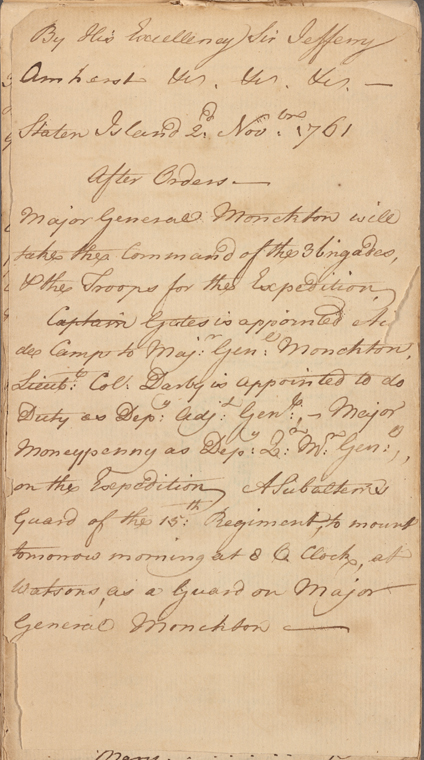 By His Excellency Sir Jefferry
Amherst &c. &c. &c. —
Staten Island 2d. Novbre. 1761
After Orders —
Major General Monckton will
take the Command of the 3 brigades,
& the Troops for the Expedition
Captain Gates is appointed Ai
de Camp to Maj:r Gen:l Monckton,
Lieut:t Col: Darby is appointed to do
Duty as Dep:y Adj:t Gen:l, – Major
Moneypenny as Dep:y: Q:r M:r Gen:l,
on the Expedition, A Subaltern's
Guard of the 15:th Regiment, to mount
tomorrow morning at 8 O Clock, at
Watsons, as a Guard on Major
General Monckton —